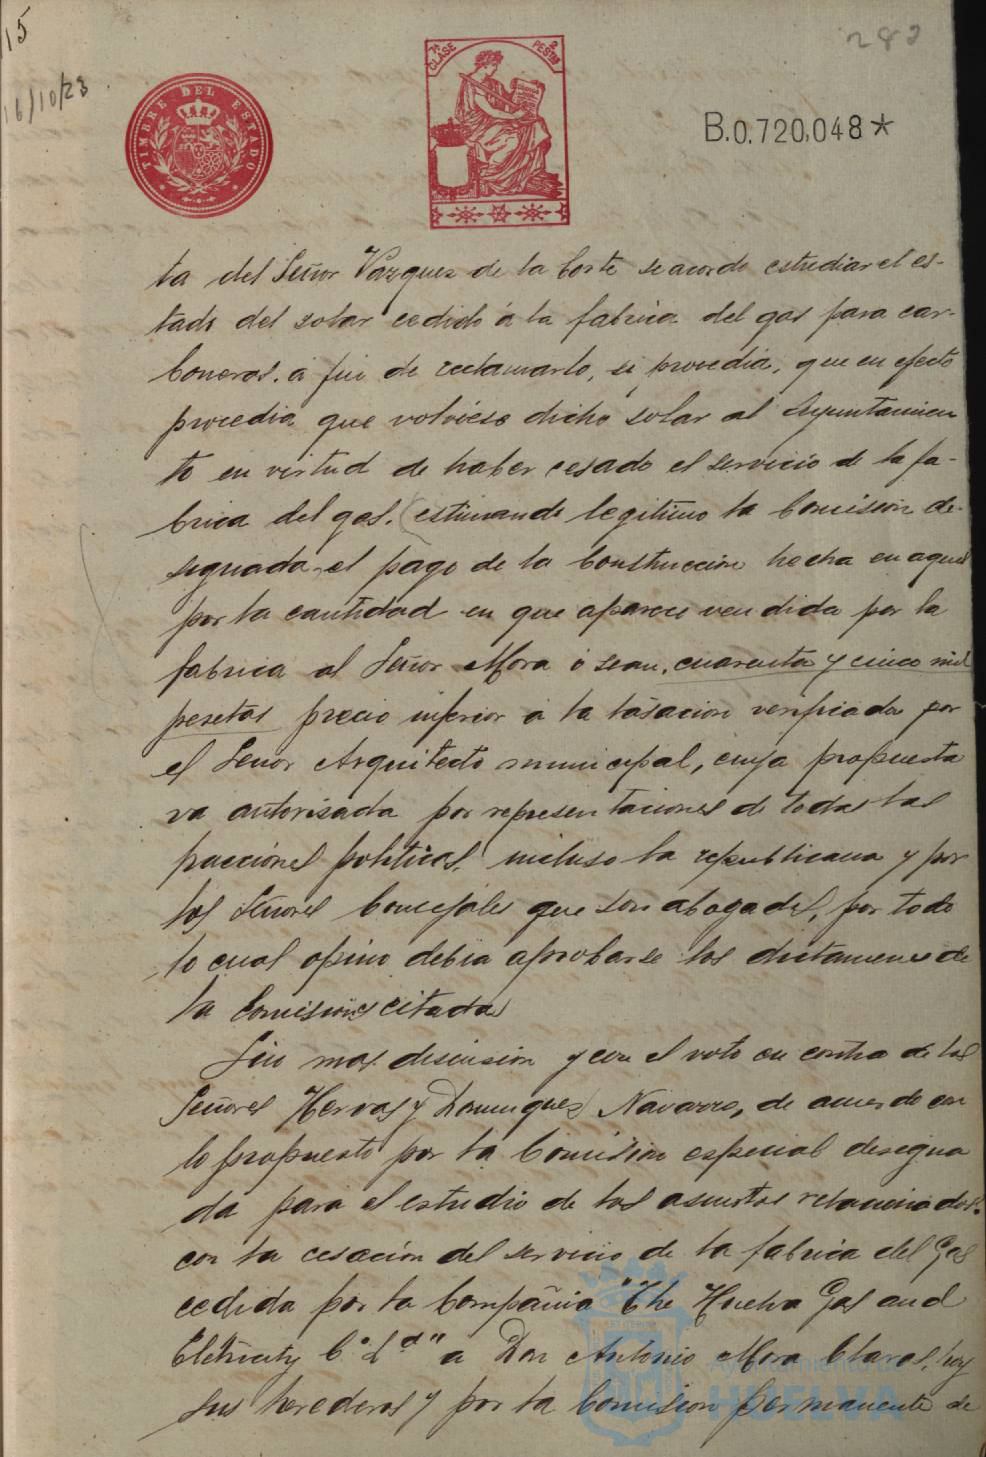 15
16/10/23
282
TIMBRE DEL ESTADO
7ª CLASE
2 PESTAS
B.0.720,048*
ta del Señor Vázquez de la Corte se acordo estudiar el es-
tado del solar cedido á la fabrica del gas para car-
boneras. a fin de reclamarlo, si procedia, que en efecto
procedia que volviese dicho solar al Ayuntamien
to en virtud de haber cesado el servicio de la fa-
brica del gas. (estimando legitimo la Comision de-
signada el pago de la Construccion hecha en aquel
por la cantidad en que aparece vendida por la
fabrica al Señor Mora ó sean, cuarenta y cinco mil
pesetas precio inferior á la tasacion verificada por
el Señor Arquitecto municipal, cuya propuesta
va autorisada por representaciones de todas las
facciones politicas, incluso la republicana y por
los Señores Concejales que son abogados, por todo
lo cual opino debia aprobarse los dictamenes de
la Comision citada
Sin mas discusion y con el voto en contra de los
Señores Hervas y Dominguez Navarro, de acuerdo con
lo propuesto por la Comision especial designa
da para el estudio de los asuntos relacionados
con la cesación del servicio de la fabrica del Gas
cedida por la Compañia "The Huelva Gas and
Eletricity Cº Lᵈ" a Don Antonio Mora Claros, hoy
sus herederos y por la Comision Permanente de
Ayuntamiento de
HUELVA